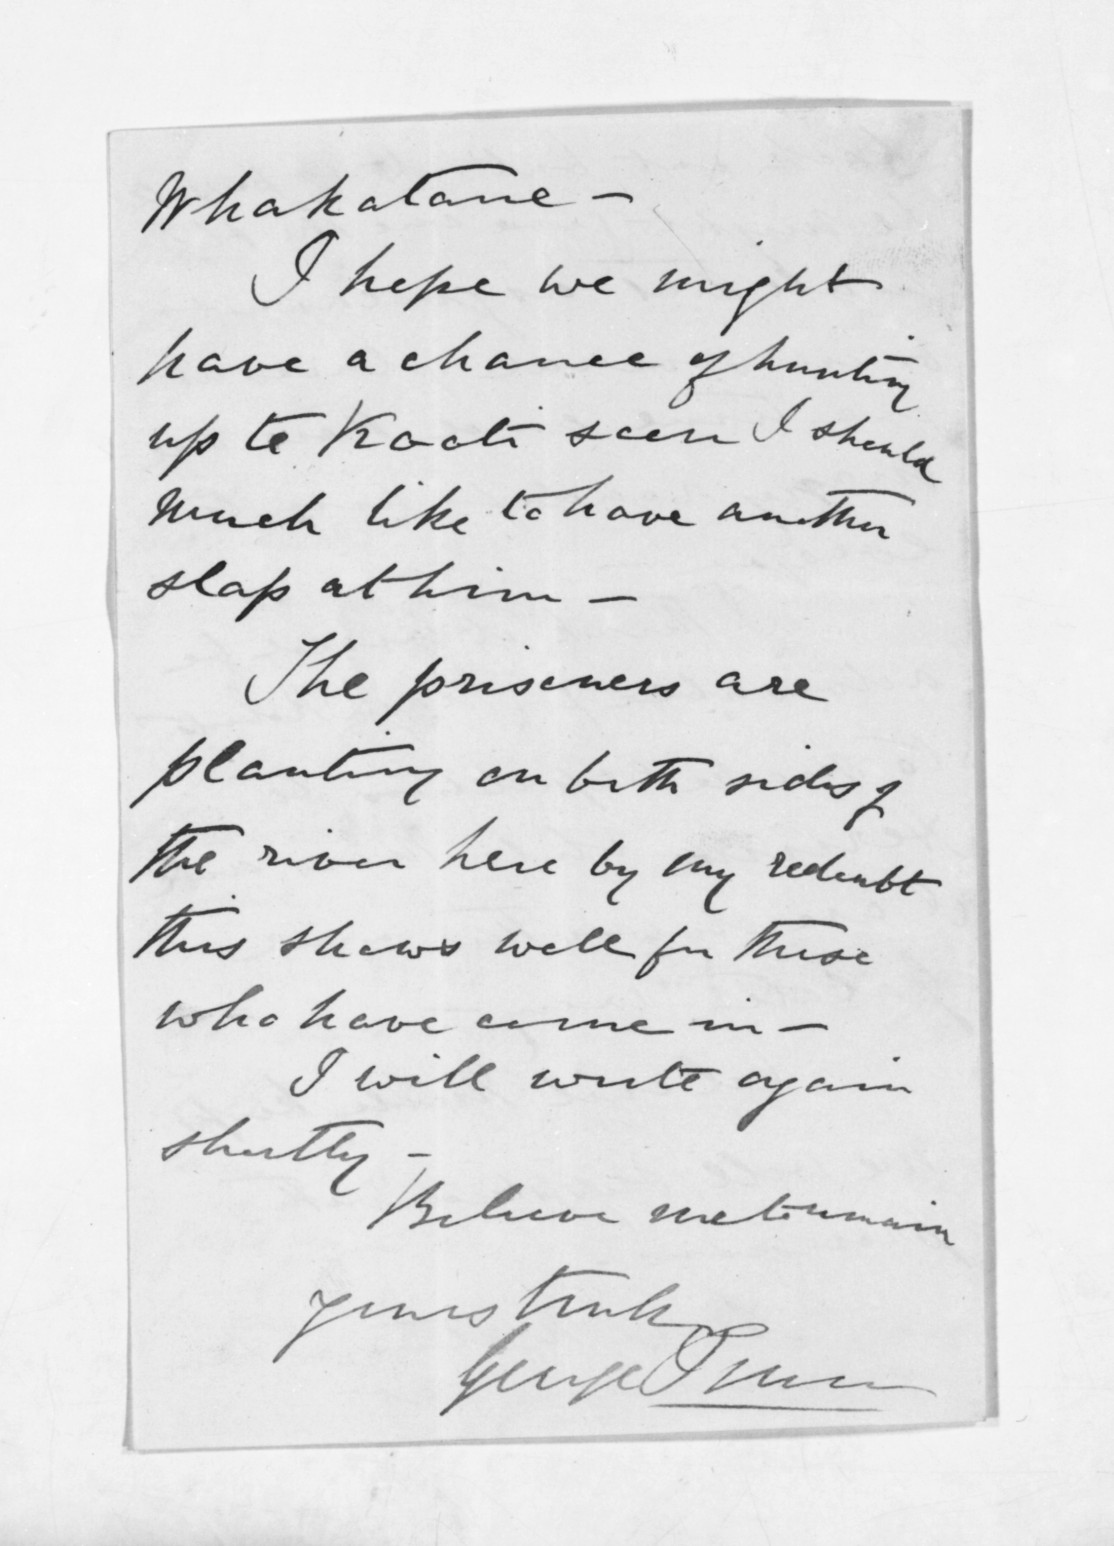 Whakatane -
I hope we might
have a chance of hunting
up te Kooti soon I should
much like to have another
slap at him -
The prisoners are
planting on both sides of
the river here by my redoubt
this shows well for those
who have come in -
I will write again
shortly -
Believe me to remain
yours truly
George